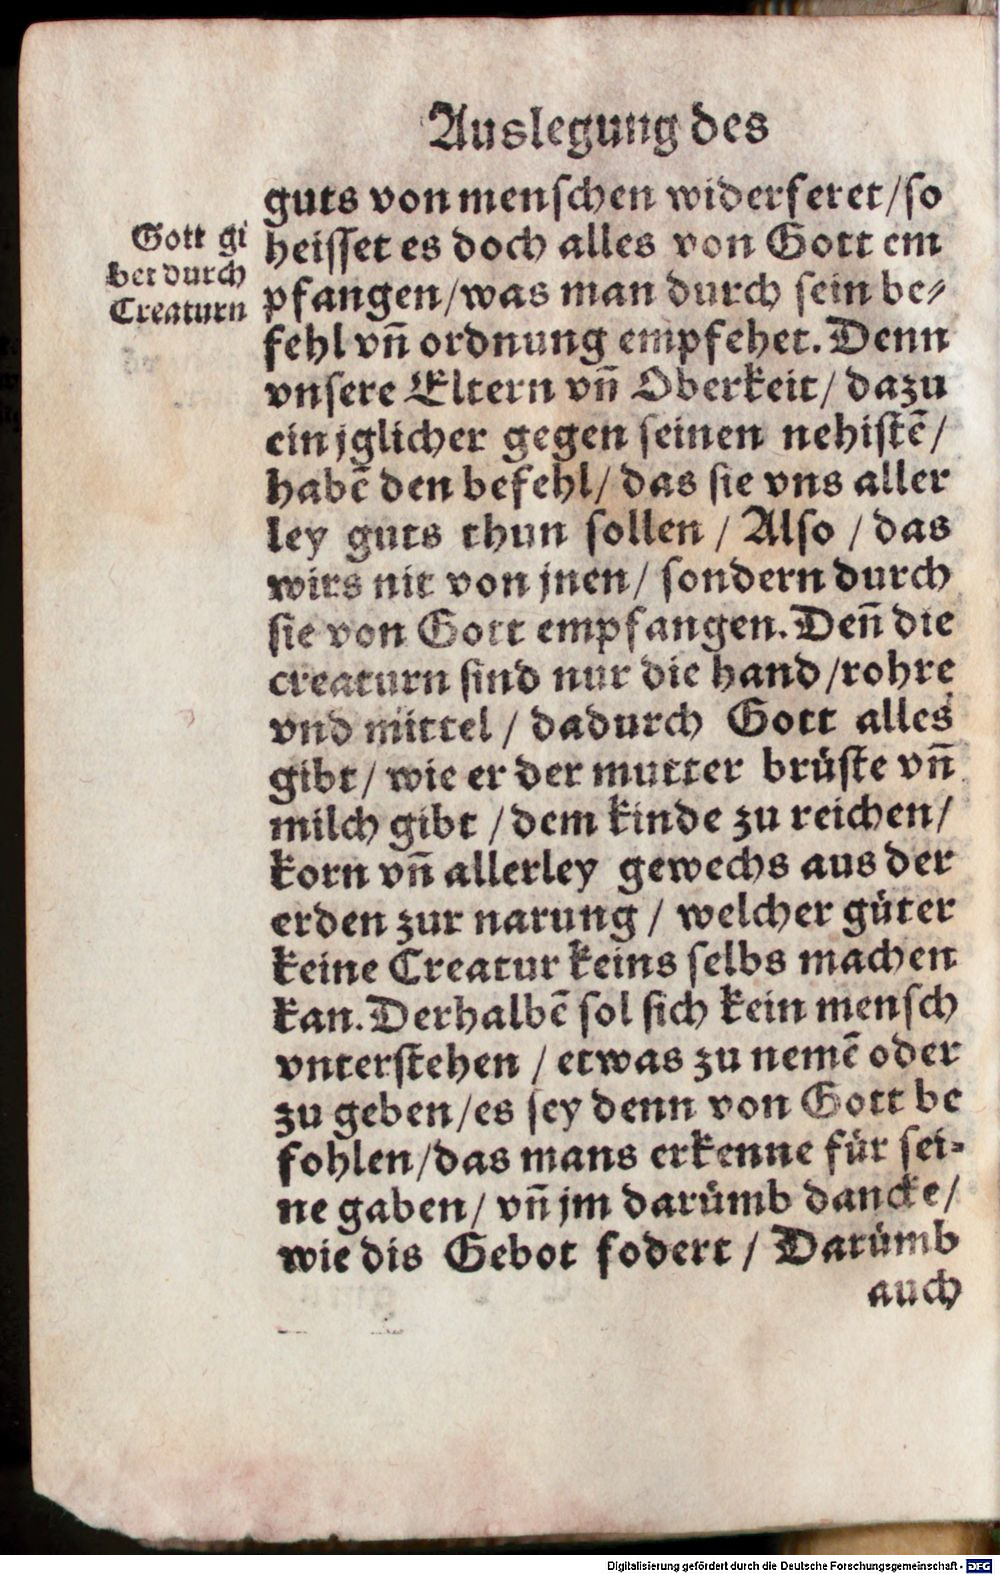 Auslegung des
guts von menschen widerferet/so
Gott gi
bet durch
Creaturn
heisset es doch alles von Gott em
pfangen/was man durch sein be⸗
fehl vn̄ ordnung empfehet. Denn
vnsere Eltern vn̄ Oberkeit/ dazu
ein jglicher gegen seinen nehistē/
habē den befehl/ das sie vns aller
ley guts thun sollen / Also / das
wirs nit von jnen/ sondern durch
sie von Gott empfangen. Den̄ die
creaturn sind nur die hand/rohre
vnd mittel / dadurch Gott alles
gibt/ wie er der mutter brüste vn̄
milch gibt / dem kinde zu reichen/
korn vn̄ allerley gewechs aus der
erden zur narung / welcher güter
keine Creatur keins selbs machen
kan. Derhalbē sol sich kein mensch
vnterstehen / etwas zu nemē oder
zu geben/es sey denn von Gott be
fohlen/das mans erkenne für sei⸗
ne gaben/ vn̄ jm darümb dancke/
wie dis Gebot fodert / Darümb
auch
Digitalisierung gefördert durch die Deutsche Forschungsgemeinschaft - DFG